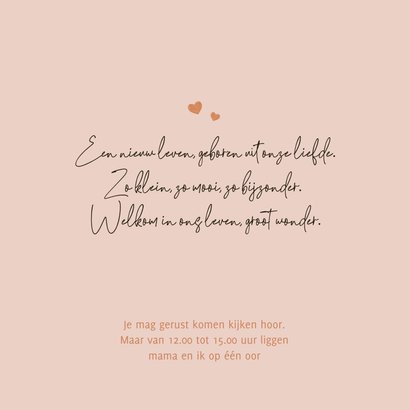 Een nieuw leven, geboren uit onze liefde.
Zo klein, zo mooi, zo bijzonder.
Welkom in ons leven, groot wonder.
Je mag gerust komen kijken hoor.
Maar van 12.00 tot 15.00 uur liggen
mama en ik op één oor